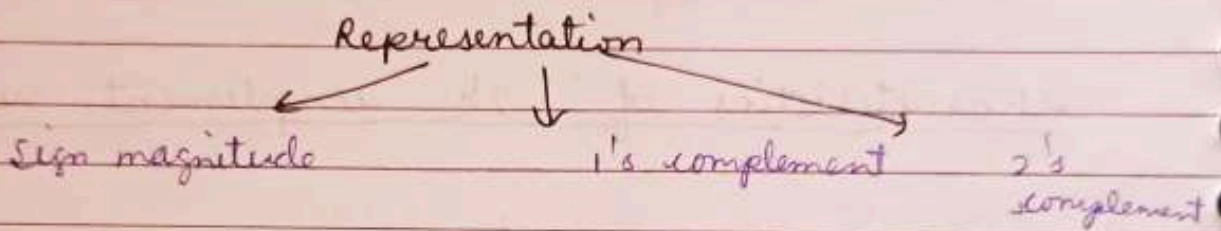 Representation
sign magnitude 1's complement 2's
complement